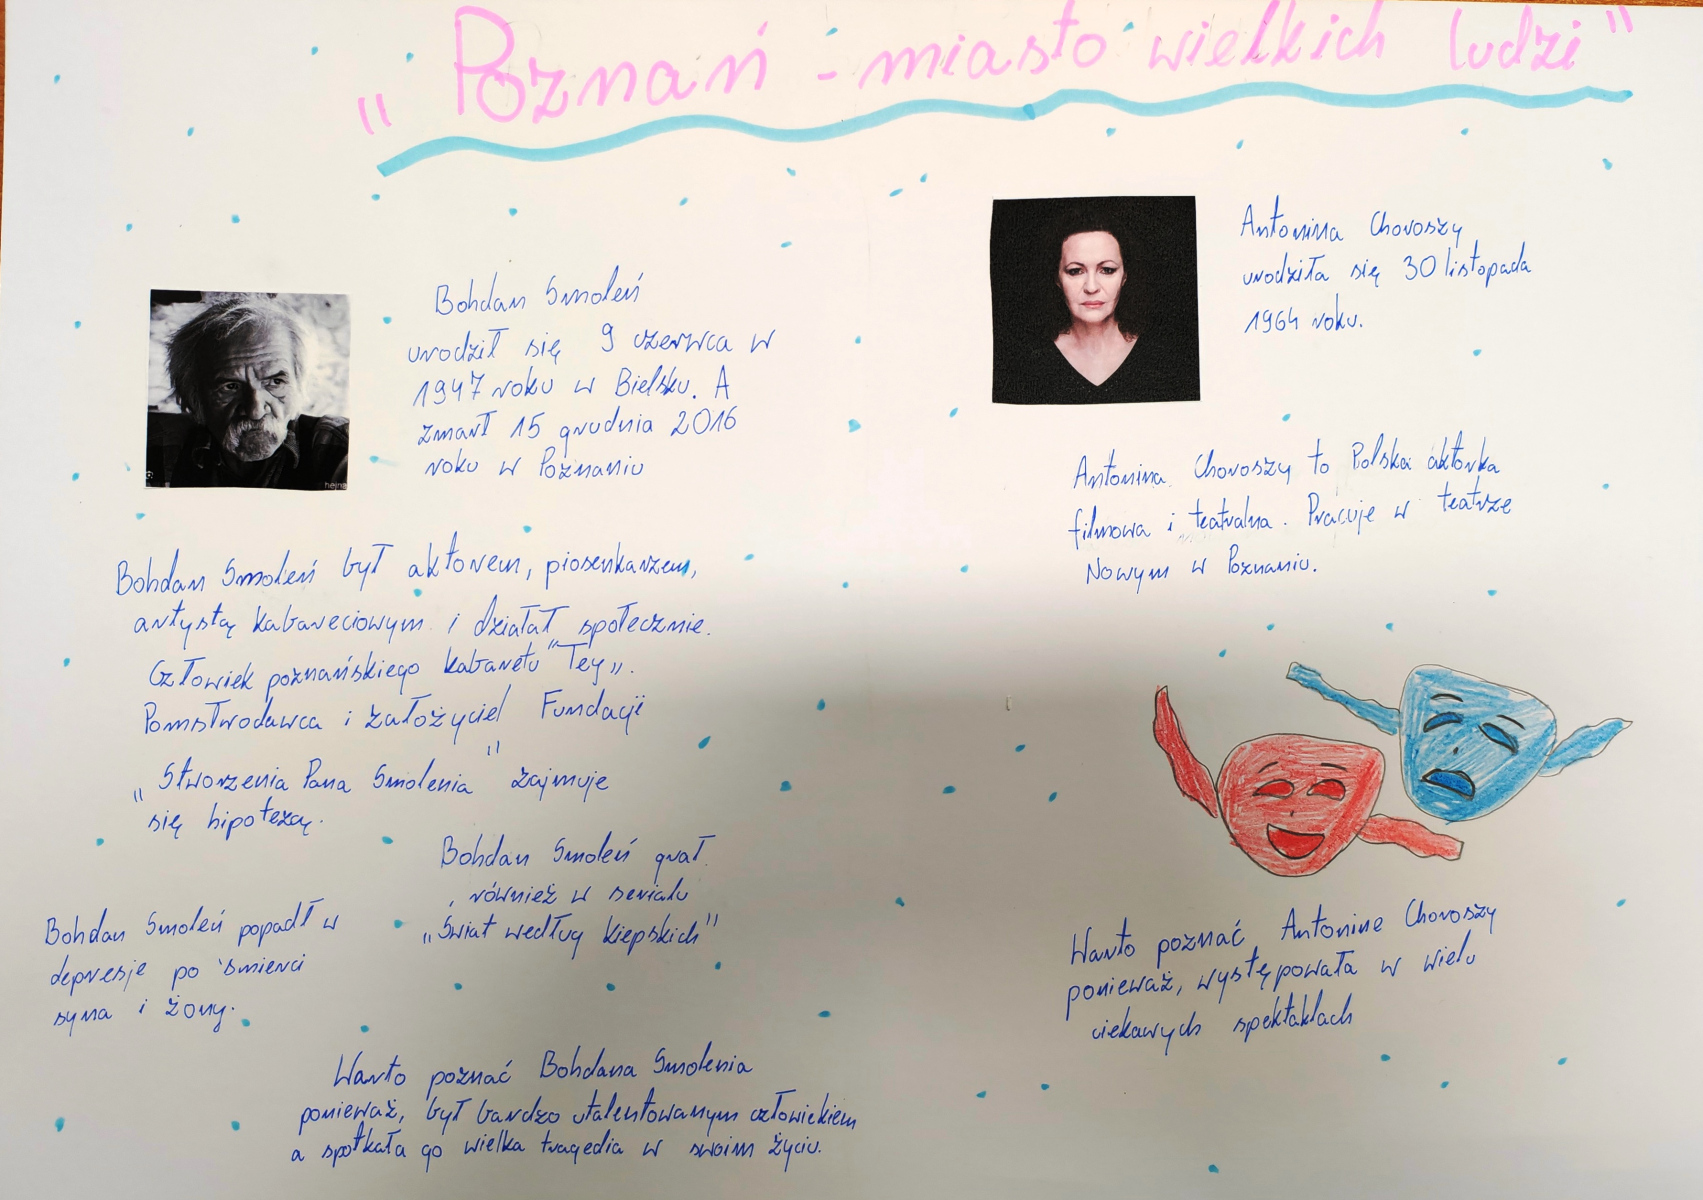 "Poznań - miasto wielkich ludzi"
Bohdan Smoleń
urodził się 9 czerwca w
1947 roku w Bielsku. A
zmarł 15 grudnia 2016
roku w Poznaniu
Bohdan Smoleń był aktorem, piosenkarzem,
artystą kabareciowym i działał społecznie.
Człowiek poznańskiego kabaretu "Tey„.
Pomsłwodawca i założyciel Fundacji
„Stworzenia Pana Smolenia" zajmuje
się hipotezą.
Bohdan Smoleń grał
również w serialu
„Świat według kiepskich"
Bohdan Smoleń popadł w
depresje po śmierci
syna i żony.
Warto poznać Bohdana Smolenia
ponieważ, był bardzo utalentowanym człowiekiem
a spotkała go wielka tragedia w swoim życiu.
Antonina Choroszy
urodziła się 30 listopada
1964 roku.
Antonina Choroszy to Polska aktorka
filmowa i teatralna. Pracuje w teatrze
Nowym w Poznaniu.
Warto poznać Antonine Choroszy
ponieważ, występowała w wielu
ciekawych spektaklach